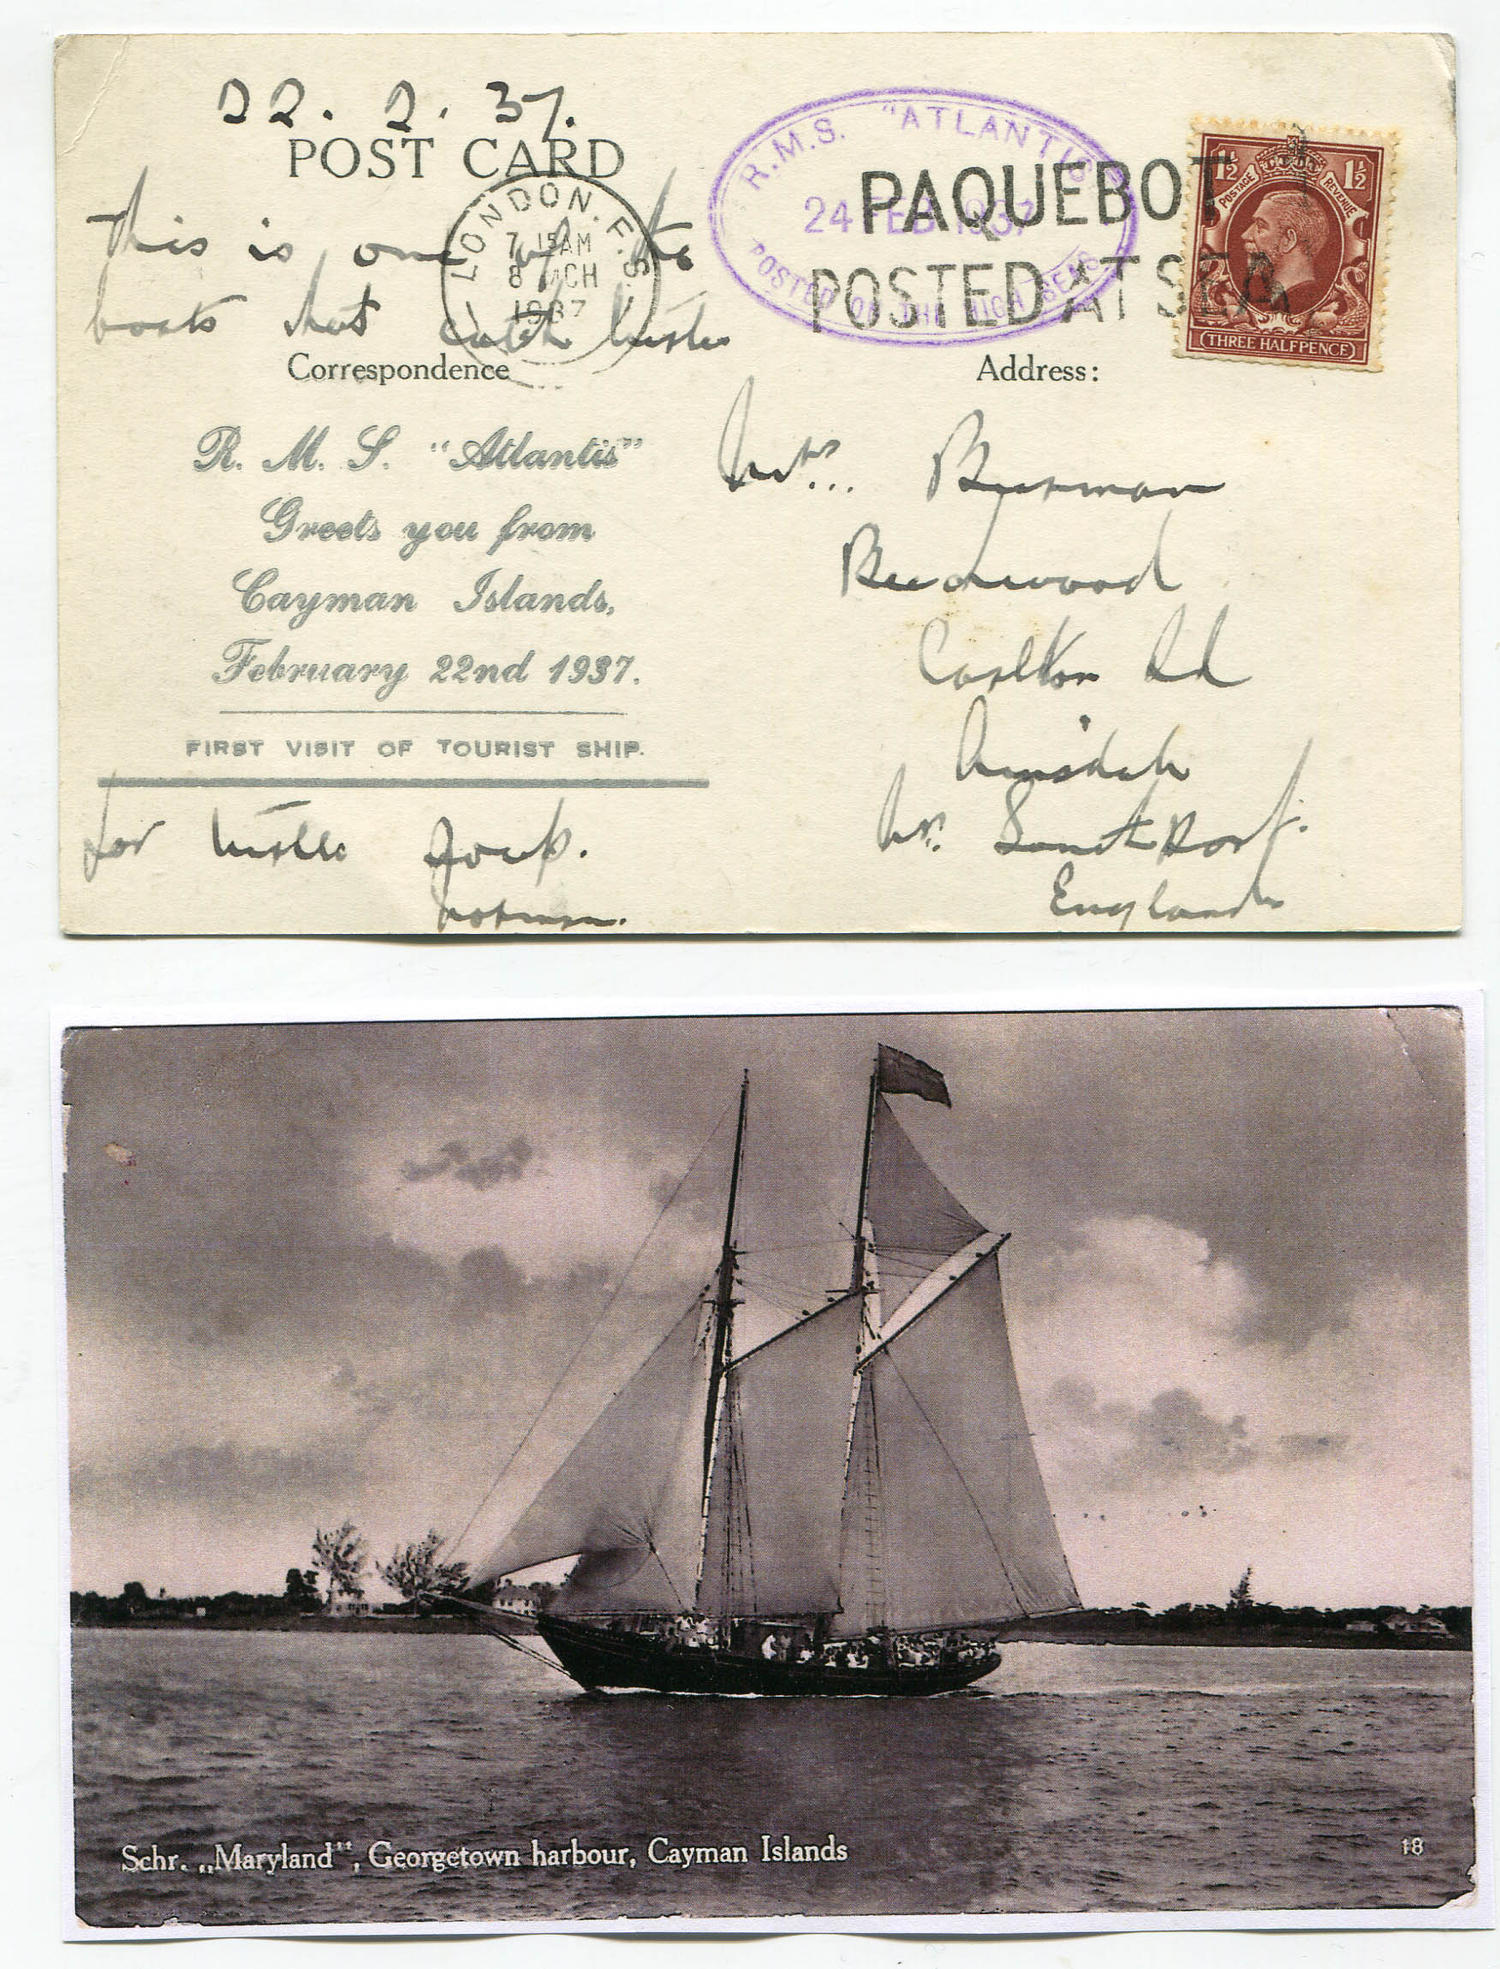 22.2.37.
POST CARD
This is one of the
boats that catch turtle
Correspondence
R. M. S. "Atlantis"
Greets you from
Cayman Islands,
February 22nd 1937.
FIRST VISIT OF TOURIST SHIP.
for turtle soup.
Norman.
LONDON. F.S.
7.15AM
8 MCH
1937
R.M.S. "ATLANTIS"
24 FEB 1937
POSTED ON THE HIGH SEAS
PAQUEBOT
POSTED AT SEA
1½ 1½
POSTAGE REVENUE
(THREE HALFPENCE)
Address:
Mrs. Burman
Beechwood
Carlton Rd
Ainsdale
Nr. Southport.
England
Schr. „Maryland", Georgetown harbour, Cayman Islands
18